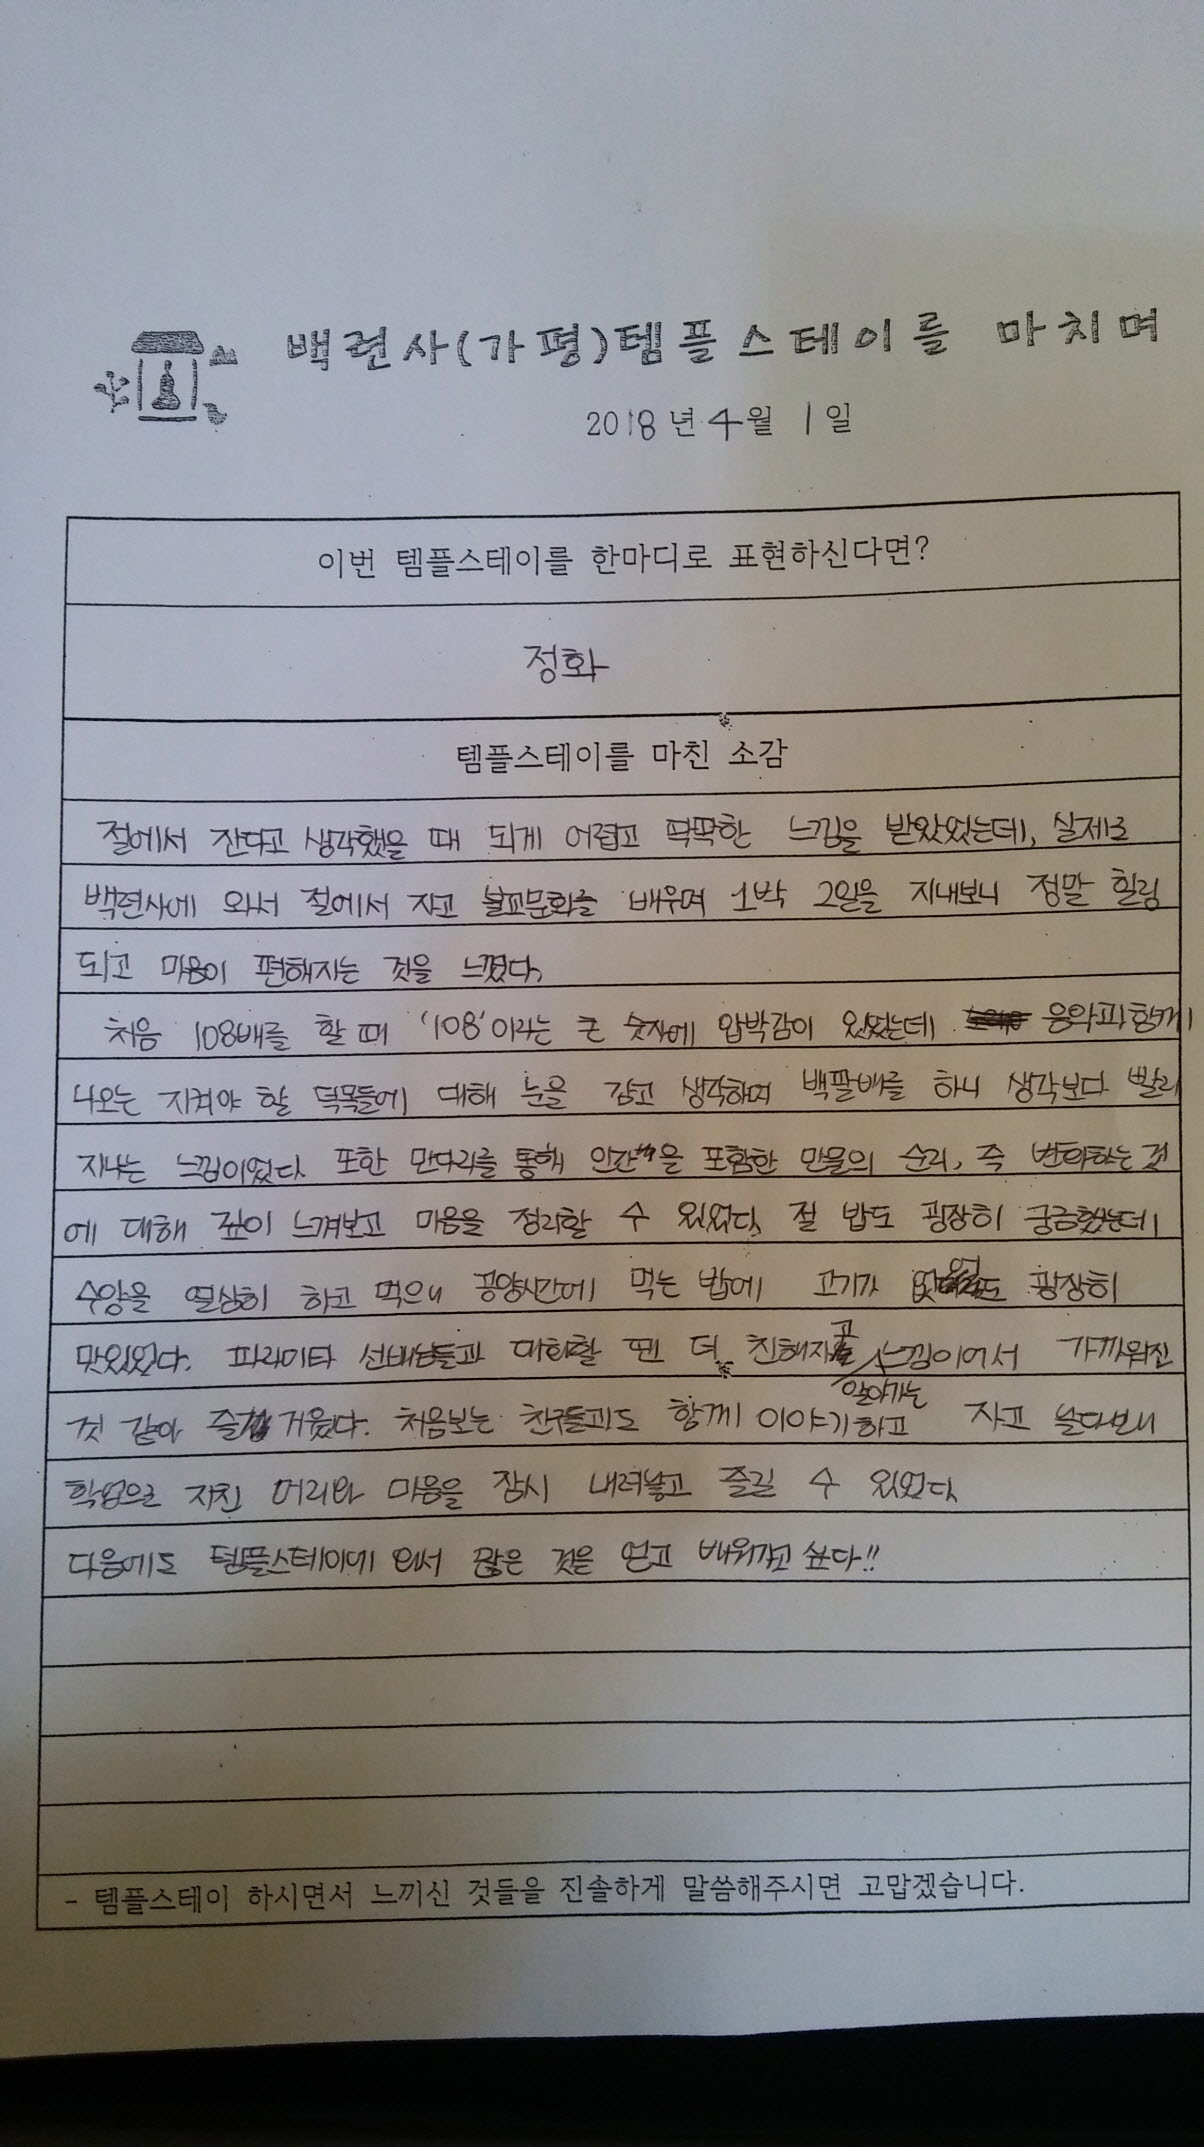 백련사(가평)템플스테이를 마치며
2018년 4월 1일
이번 템플스테이를 한마디로 표현하신다면?
정화
템플스테이를 마친 소감
절에서 잔다고 생각했을 때 되게 어렵고 딱딱한 느낌을 받았었는데, 실제로
백련사에 와서 절에서 자고 불교문화를 배우며 1박 2일을 지내보니 정말 힐링
되고 마음이 편해지는 것을 느꼈다.
처음 108배를 할 때 '108'이라는 큰 숫자에 압박감이 있었는데 음악과 함께
나오는 지켜야 할 덕목들에 대해 눈을 감고 생각하며 백팔배를 하니 생각보다 빨리
지나는 느낌이었다. 또한 만다라를 통해 인간을 포함한 만물의 순리, 즉 변화하는 것
에 대해 깊이 느껴보고 마음을 정리할 수 있었다. 절 밥도 굉장히 궁금했는데
수양을 열심히 하고 먹으니 공양시간에 먹는 밥에 고기가 없어도 굉장히
맛있었다. 파라미타 선배님들과 대화할 땐 더 친해지고 알아가는 느낌이어서 가까워진
것 같아 즐거웠다. 처음보는 친구들과도 함께 이야기하고 자고 놀다보니
학업으로 지친 머리와 마음을 잠시 내려놓고 즐길 수 있었다.
다음에도 템플스테이에 와서 많은 것을 얻고 배워가고 싶다!!
- 템플스테이 하시면서 느끼신 것들을 진솔하게 말씀해주시면 고맙겠습니다.